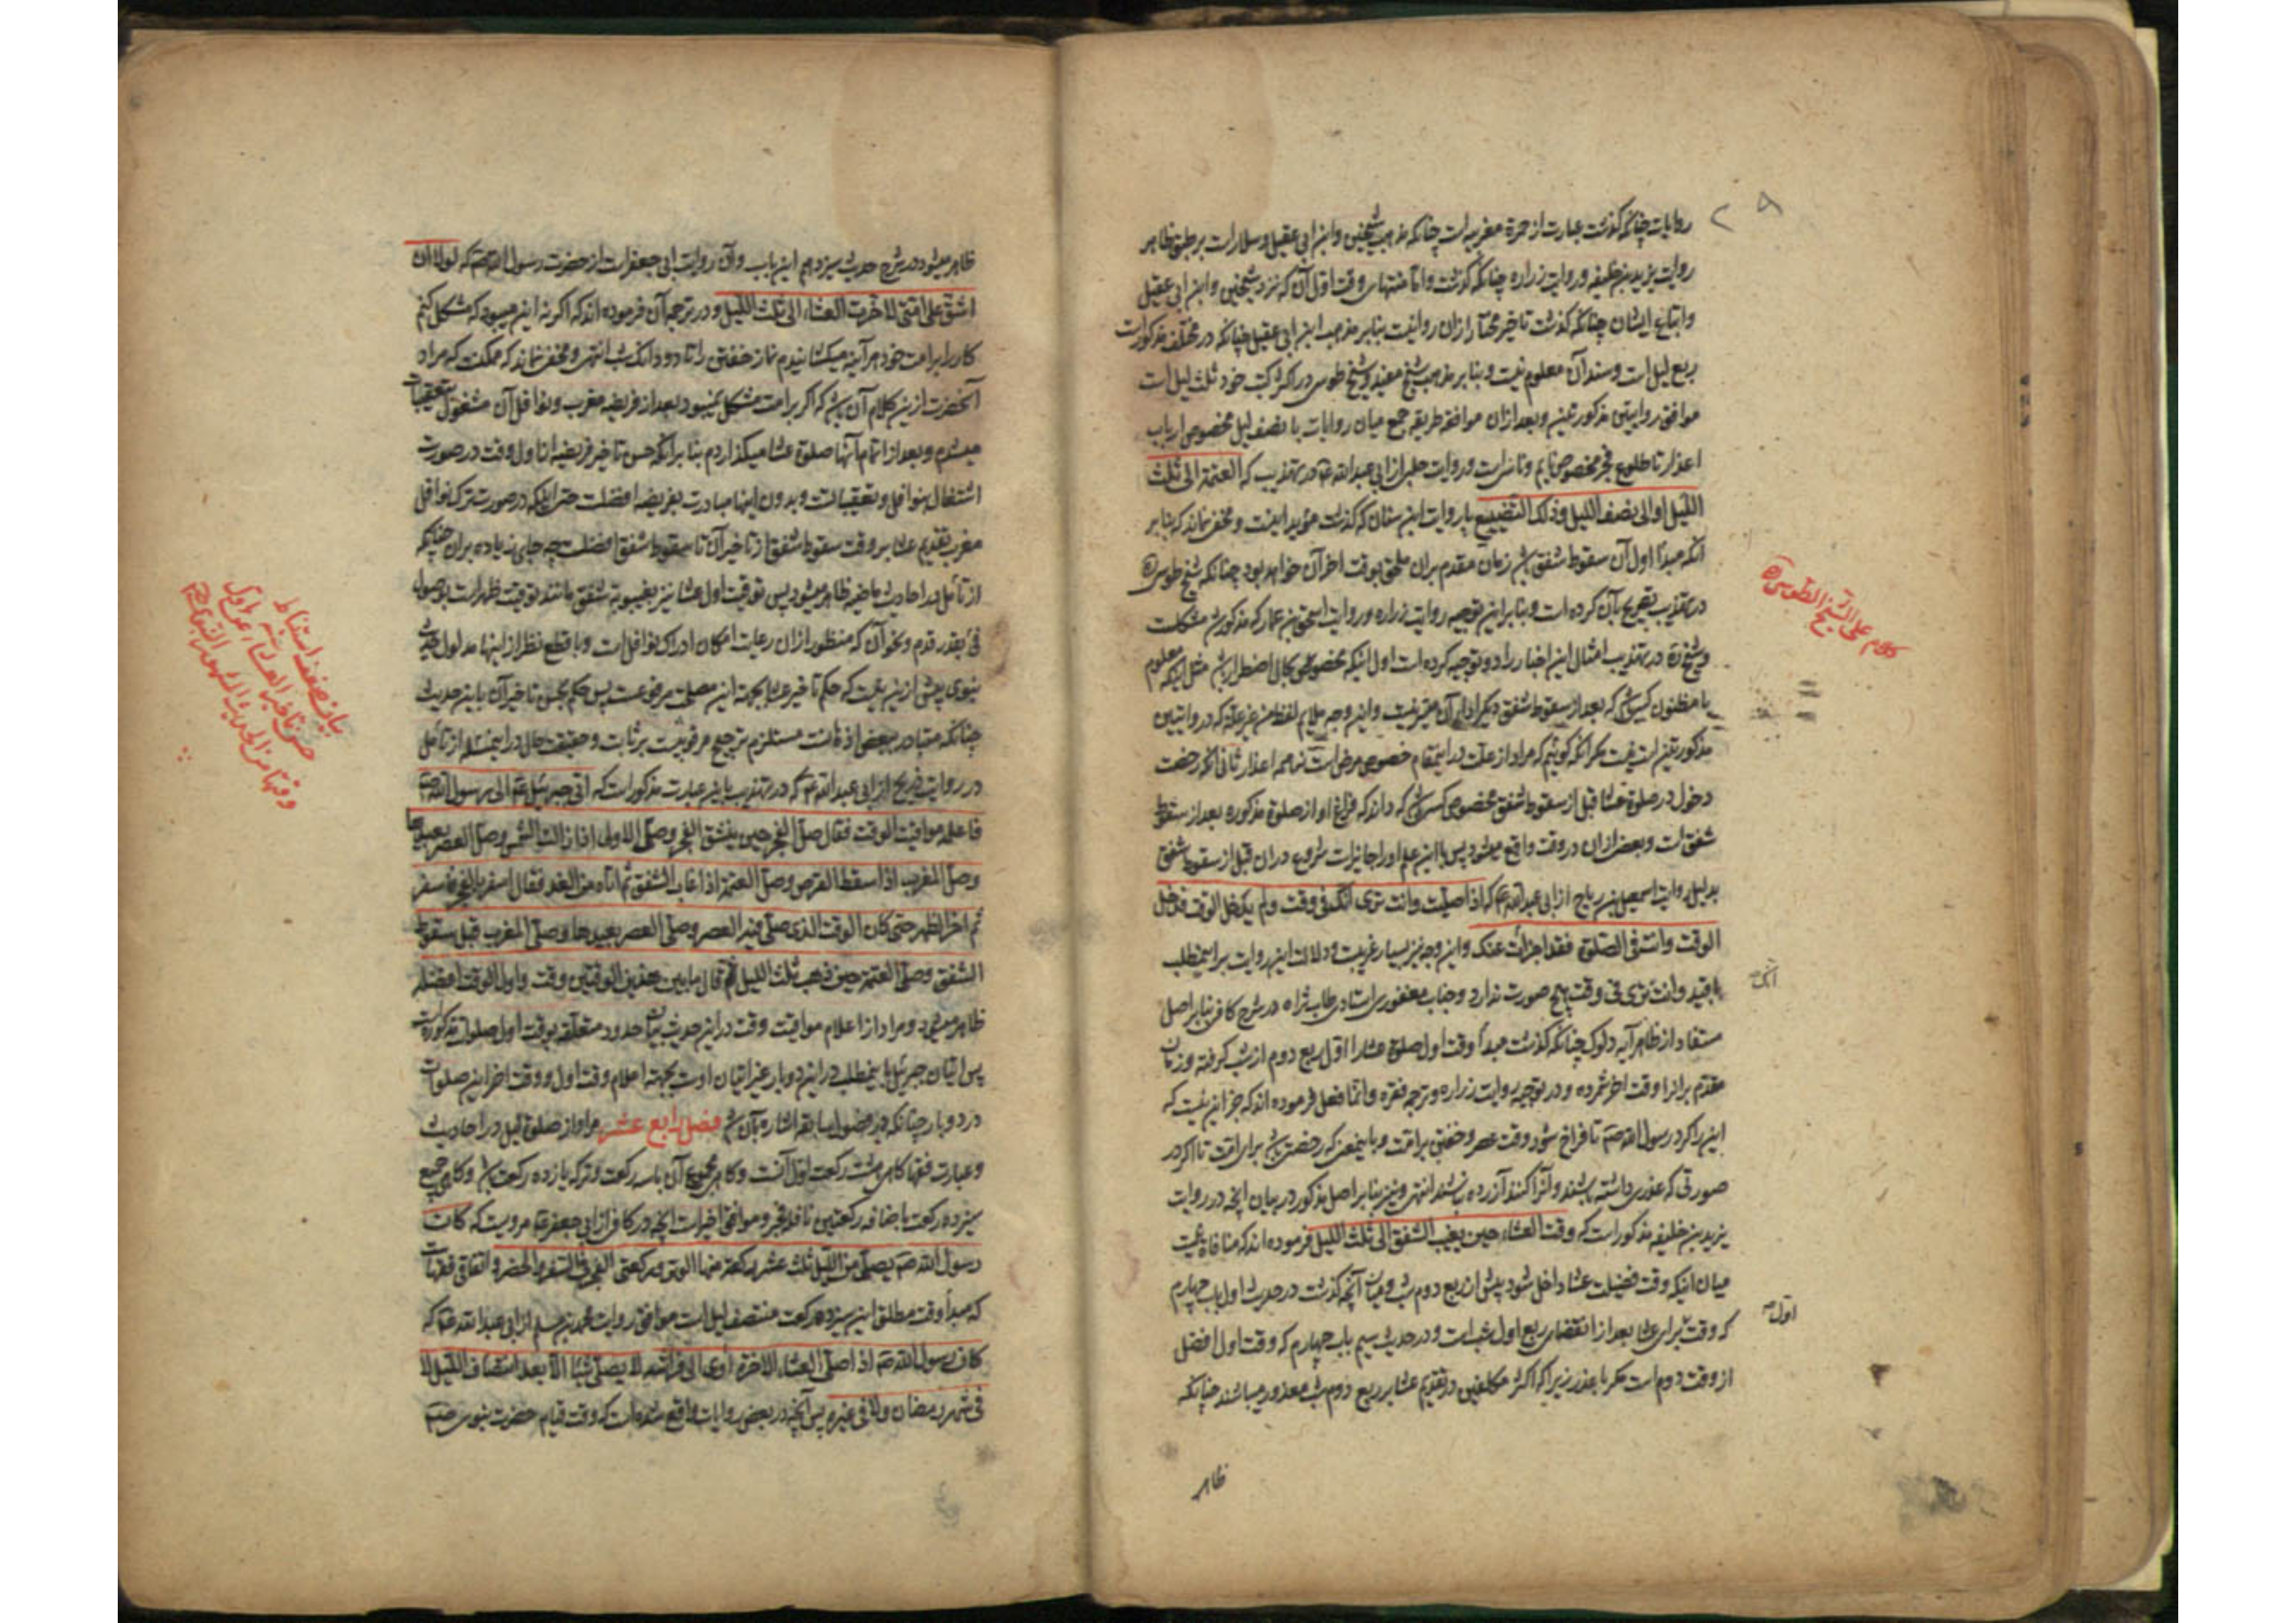 ۲۹
روایات چنانکه گذشت عبارت از حمرة مغربیه است چنانکه مذهب شیخین وابن ابی عقیل وسلار است بر طبق ظاهر
روایت یزید بن خلیفه وروایت زراره چنانکه گذشت واما منتهای وقت اول آن که نزد شیخین وابن ابی عقیل
واتباع ایشان چنانکه گذشت تاخیر مختار ازان روا نیست بنابر مذهب ابن ابی عقیل چنانکه در مختلف مذکور است
ربع لیل است وسند آن معلوم نیست وبنابر مذهب شیخ مفید وشیخ طوسی در اکثر کتب خود ثلث لیل است
موافق روایتین مذکورتین وبعد ازان موافقه طریقه جمع میان روایات تا نصف لیل مخصوص ارباب
اعذار تا طلوع فجر مخصوص نایم وناسی است وروایت حلبی از ابی عبدالله ع در تهذیب که العتمة الی ثلث
اللیل او الی نصف اللیل وذلک التضییع یا روایت ابن سنان که گذشت مؤید اینست ومخفی نماند که بنابر
آنکه مبدأ اول آن سقوط شفق باشد زمان مقدم بران ملحق بوقت اخر آن خواهد بود چنانکه شیخ طوسی ره
در تهذیب تصریح بآن کرده است وبنابراین توجیه روایت زراره وروایت اسحق بن عمار که مذکور شد مشکلست
وشیخ ره در تهذیب امثال این اخبار را دو توجیه کرده است اول اینکه مخصوص بحال اضطرار باشد مثل اینکه معلوم
یا مظنون کسی باشد که بعد از سقوط شفق دیگر ادای آن میسر نیست واین وجه ملایم لفظ من غیر علة که در روایتین
مذکورتین است نیست مگر آنکه گوئیم که مراد از علت در اینمقام خصوص مرض است نه همه اعذار ثانی آنکه رخصت
دخول در صلوة عشا قبل از سقوط شفق مخصوص کسی باشد که داند که فراغ او از صلوة مذکوره بعد از سقوط
شفق است وبعض ازان در وقت واقع میشود پس با این علم او را جایز است شروع دران قبل از سقوط شفق
بدلیل روایت اسمعیل بن رباح از ابی عبدالله ع که اذا صلیت وانت تری انک فی وقت ولم یدخل الوقت فدخل
الوقت وانت فی الصلوة فقد اجزأت عنک واین وجه نیز بسیار غریبست ودلالت این روایت بر اینمطلب
با قید وانت تری فی وقت هیچ صورت ندارد وجناب مغفوری استادی طاب ثراه در شرح کافی بنابر اصل
مستفاد از ظاهر آیه دلوک چنانکه گذشت مبدأ وقت اول صلوة عشا را اول ربع دوم از شب گرفته وزمان
مقدم بر انرا وقت اخر شمرده ودر توجیه روایت زراره وترجمه فقره وانما فعل فرموده اند که جز این نیست که
این را کرد رسول الله ص تا فراخ شود وقت عصر وخفتن بر امت وباینمعنی که رخصتی باشد برای امت تا اگر در
صورتی که عذری داشته باشند وآنرا کنند آزرده نباشند انتهی ونیز بنابر اصل مذکور در بیان آنچه در روایت
یزید بن خلیفه مذکور است که وقت العشاء حین یغیب الشفق الی ثلث اللیل فرموده اند که منافاة نیست
میان اینکه وقت فضیلت عشا داخل شود پیش از ربع دوم شب ومیان آنچه گذشت در حدیث اول باب چهارم
که وقت برای عشا بعد از انقضای ربع اول شب است ودر حدیث سیم باب چهارم که وقت اول افضل
از وقت دوم است مگر با عذر زیرا که اکثر مکلفین در تقدیم عشا بر ربع دوم شب معذور میباشند چنانکه
ظاهر
کلام علی الشیخ الطوسی ره
اول
ظاهر میشود در شرح حدیث سیزدهم این باب وآن روایت ابی جعفر است از حضرت رسول الله ص که لولا ان
اشق علی امتی لاخرت العشاء الی ثلث اللیل ودر ترجمه آن فرموده اند که اگر نه این میبود که مشکل کنم
کار را بر امت خود هر آینه میکشانیدم نماز خفتن را تا دو دانک شب انتهی ومخفی نماند که ممکنست که مراد
آنحضرت ازین کلام آن باشد که اگر بر امت مشکل نمیبود بعد از فریضه مغرب ونوافل آن مشغول تعقیبات
میشدم وبعد از اتمام آنها صلوة عشا میگذاردم بنابر آنکه حسن تاخیر فریضه از اول وقت در صورت
اشتغال بنوافل وتعقیباتست وبدون اینها مبادرت بفریضه افضلست حتی اینکه در صورت ترک نوافل
مغرب تقدیم عشا بر وقت سقوط شفق از تاخیر آن تا سقوط شفق افضلست چه جای زیاده بران چنانکه
از تأمل در احادیث ماضیه ظاهر میشود پس توقیت اول عشا نیز بغیبوبة شفق مانند توقیت ظهر است بوصول
فئ بقدر قدم ونحو آن که منظور ازان رعایت امکان ادراک نوافل است وبا قطع نظر از اینها مدلول حدیث
نبوی بیش ازین نیست که حکم تاخیر عشا بجهة این مصلحت مرفوعست پس حکم بحسن تاخیر آن باین حدیث
چنانکه متبادر بعضی اذهانست مستلزم ترجیح مرفوعیست بر ثابت وحقیقت حال در اینمسئله از تأمل
در روایت ذریح از ابی عبدالله ع که در تهذیب باین عبارت مذکور است که اتی جبرئیل ع الی رسول الله ص
فاعلمه مواقیت الوقت فقال صل الفجر حین ینشق الفجر وصل الاولی اذا زالت الشمس وصل العصر بعیدها
وصل المغرب اذا سقط القرص وصل العتمة اذا غاب الشفق ثم اتاه من الغد فقال اسفر بالفجر فاسفر
ثم اخر الظهر حتی کان الوقت الذی صلی فیه العصر وصلی العصر بعیدها وصلی المغرب قبل سقوط
الشفق وصلی العتمة حین ذهب ثلث اللیل ثم قال ما بین هذین الوقتین وقت واول الوقت افضله
ظاهر میشود ومراد از اعلام مواقیت وقت در این حدیث بیان حدود متعلقه بوقت اول صلوات مذکوره است
پس اتیان جبرئیل باینمطلب در این دو بار غیر اتیان اوست بجهة اعلام وقت اول ووقت اخر این صلوات
در دو بار چنانکه در فصول سابقه اشاره بآن شد فصل رابع عشر مراد از صلوة لیل در احادیث
وعبارت فقها گاهی هشت رکعت اول آنست وگاهی مجموع آن با سه رکعت وتر که یازده رکعت باشد وگاهی جمیع
سیزده رکعت باضافه رکعتین نافله فجر وموافق اخیر است آنچه در کافی از ابی جعفر ع مرویست که کان
رسول الله ص یصلی من اللیل ثلث عشر رکعة منها الوتر ورکعتی الفجر فی السفر والحضر واتفاقی فقهاست
که مبدأ وقت مطلق این سیزده رکعت منتصف لیل است موافق روایت محمد بن مسلم از ابی عبدالله ع که
کان رسول الله ص اذا صلی العشاء الاخرة اوی الی فراشه لا یصلی شیئا الا بعد انتصاف اللیل لا
فی شهر رمضان ولا فی غیره پس آنچه در بعض روایات واقع شده است که وقت قیام حضرت نبوی ص
بیان ضعف استنباط
حسن تاخیر العشاء عن اول
وقتها من الحدیث المشهور النبوی ص